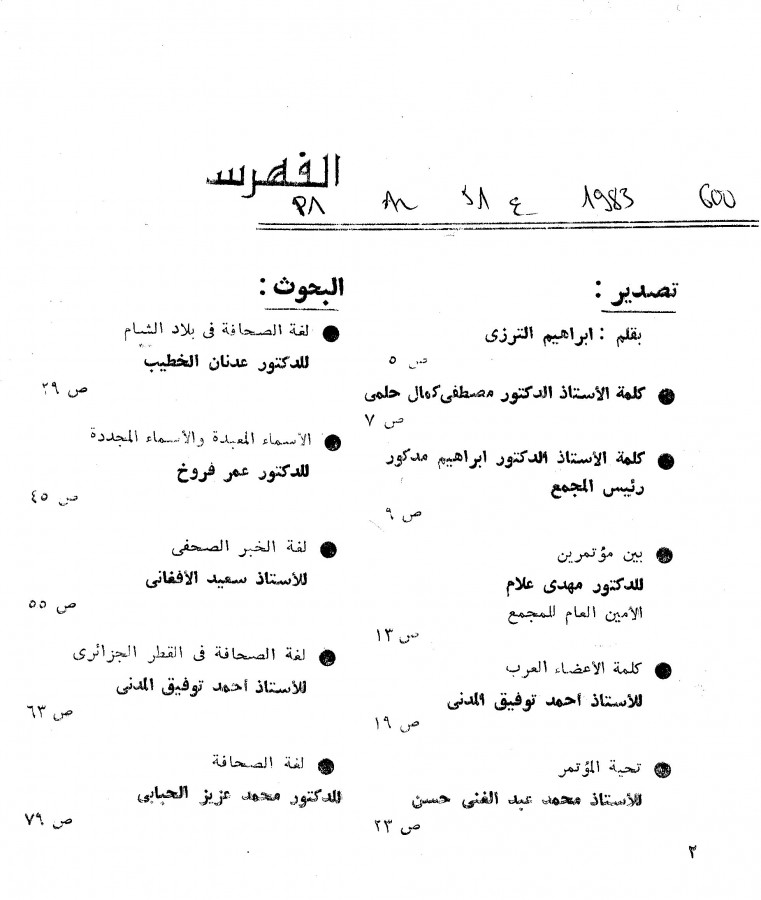 الفهرس
600 1983
تصدير :
بقلم : ابراهيم الترزى
ص ٥
كلمة الأستاذ الدكتور مصطفى كمال حلمى
ص ٧
كلمة الأستاذ الدكتور ابراهيم مدكور
رئيس المجمع
ص ٩
بين مؤتمرين
للدكتور مهدى علام
الأمين العام للمجمع
ص ١٣
كلمة الأعضاء العرب
للأستاذ أحمد توفيق المدنى
ص ١٩
تحية المؤتمر
للأستاذ محمد عبد الغنى حسن
ص ٢٣
البحوث :
لغة الصحافة فى بلاد الشام
للدكتور عدنان الخطيب
ص ٢٩
الأسماء المعبدة والأسماء المجددة
للدكتور عمر فروخ
ص ٤٥
لغة الخبر الصحفى
للأستاذ سعيد الأفغانى
ص ٥٥
لغة الصحافة فى القطر الجزائرى
للأستاذ أحمد توفيق المدنى
ص ٦٣
لغة الصحافة
للدكتور محمد عزيز الحبابى
ص ٧٩
٢